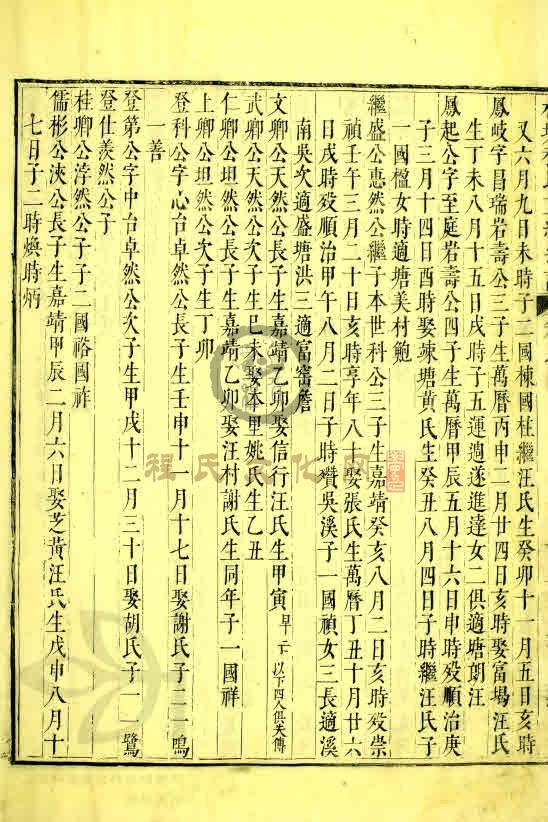 又六月九日未時子二國棟國柱繼汪氏生癸卯十一月五日亥時
鳳岐字昌瑞岩壽公三子生萬曆丙申二月廿四日亥時娶富堨汪氏
生丁未八月十五日戌時子五運遹遂進達女二俱適塘朗汪
鳳起公字至庭岩壽公四子生萬曆甲辰五月十六日申時歿順治庚
子三月十四日酉時娶竦塘黃氏生癸丑八月四日子時繼汪氏子
一國楹女時適塘美村鮑
繼盛公惠然公繼子本世科公三子生嘉靖癸亥八月二日亥時歿崇
禎壬午三月二十日亥時享年八十娶張氏生萬曆丁丑十月廿六
日戌時歿順治甲午八月二日子時欑吳溪子一國禎女三長適溪
南吳次適盛塘洪三適富窑詹
文卿公天然公長子生嘉靖乙卯娶信行汪氏生甲寅早亡以下四人俱失傳
武卿公天然公次子生巳未娶本里姚氏生乙丑
仁卿公坦然公長子生嘉靖乙卯娶汪村謝氏生同年子一國祥
上卿公坦然公次子生丁卯
登科公字心台卓然公長子生壬申十一月十七日娶謝氏子二一鳴
一善
登第公字中台卓然公次子生甲戌十二月三十日娶胡氏子一一鷺
登仕羨然公子
桂卿公浡然公子子二國裕國祚
儒彬公浹公長子生嘉靖甲辰二月六日娶芝黃汪氏生戊申八月十
七日子二時煥時炳
程氏文化网